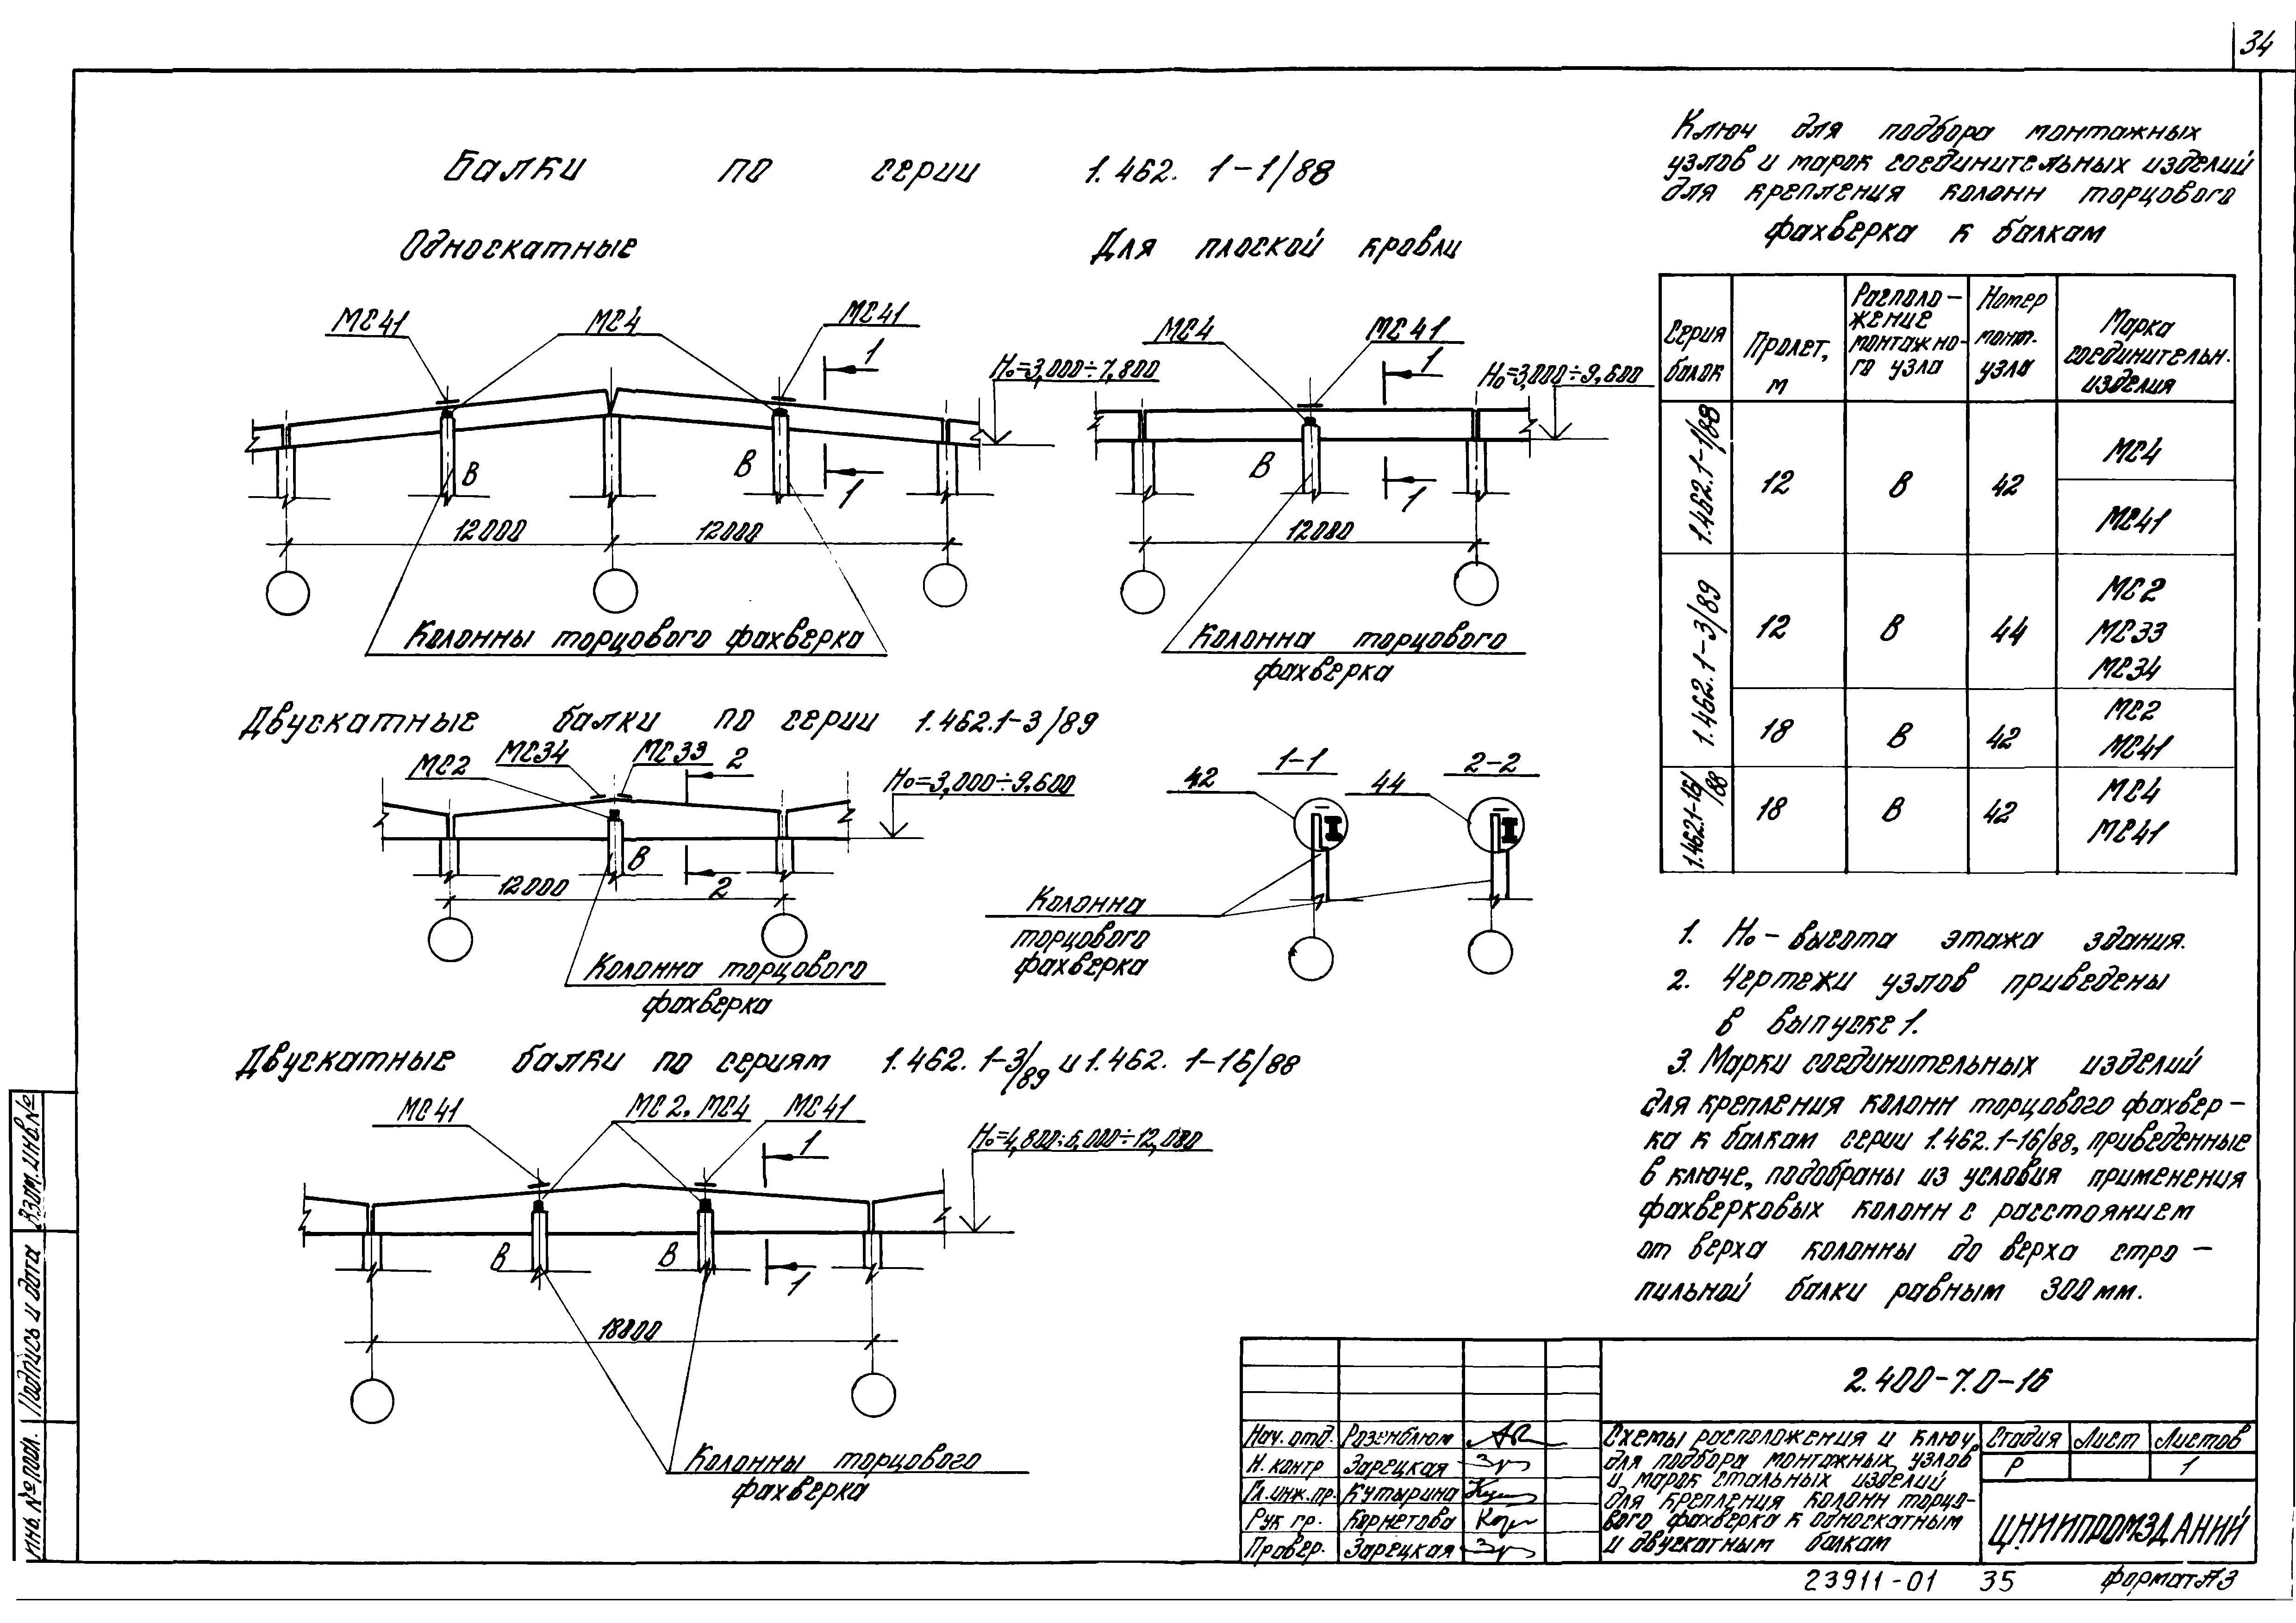 34
Балки по серии 1.462. 1-1/88
Односкатные
Для плоской кровли
МС41
МС4
МС41
1
Н₀=3,000÷7,800
В
В
1
12000
12000
Колонны торцового фахверка
МС4
МС41
1
Н₀=3,000÷9,600
В
1
12000
Колонна торцового
фахверка
Двускатные балки по серии 1.462.1-3/89
МС2
МС34
МС33
2
Н₀=3,000÷9,600
В
2
12000
Колонна торцового
фахверка
1-1
42
2-2
44
Колонна
торцового
фахверка
Двускатные балки по сериям 1.462. 1-3/89 и 1.462. 1-16/88
МС41
МС2, МС4
МС41
1
Н₀=4,800; 6,000÷12,000
В
В
1
18000
Колонны торцового
фахверка
Ключ для подбора монтажных
узлов и марок соединительных изделий
для крепления колонн торцового
фахверка к балкам
Серия
балок
Пролет,
м
Располо-
жение
монтажно-
го узла
Номер
монт.
узла
Марка
соединительн.
изделия
1.462.1-1/88
12
В
42
МС4
МС41
1.462.1-3/89
12
В
44
МС2
МС33
МС34
18
В
42
МС2
МС41
1.462.1-16/88
18
В
42
МС4
МС41
1. Н₀ - высота этажа здания.
2. Чертежи узлов приведены
в выпуске 1.
3. Марки соединительных изделий
для крепления колонн торцового фахвер-
ка к балкам серии 1.462.1-16/88, приведенные
в ключе, подобраны из условия применения
фахверковых колонн с расстоянием
от верха колонны до верха стро-
пильной балки равным 300 мм.
2.400-7.0-16
Нач. отд. Розенблюм
Н. контр Зарецкая
Гл. инж. пр. Кутырина
Рук гр. Корнетова
Провер. Зарецкая
Схемы расположения и ключ
для подбора монтажных узлов
и марок стальных изделий
для крепления колонн торцо-
вого фахверка к односкатным
и двускатным балкам
Стадия Лист Листов
Р 1
ЦНИИПРОМЗДАНИЙ
23911-01 35 Формат А3
Взам. инв. №
Подпись и дата
Инв. № подл.